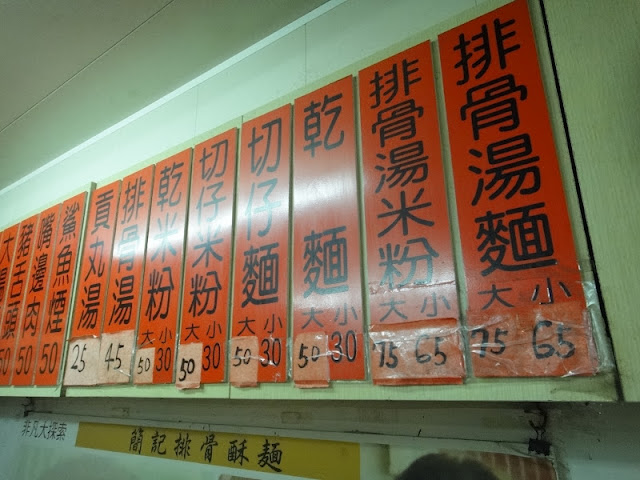 排骨湯麵
大 小
75 65
排骨湯米粉
大 小
75 65
乾麵
大 小
50 30
切仔麵
大 小
50 30
切仔米粉
大 小
50 30
乾米粉
大 小
50 30
排骨湯
45
貢丸湯
25
鯊魚煙
50
嘴邊肉
50
豬舌頭
50
50
非凡大探索
簡記排骨酥麵